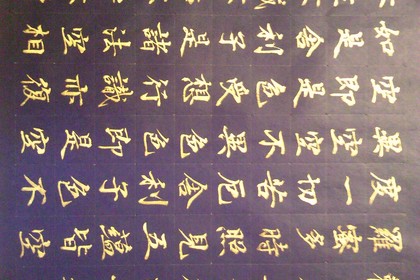 羅蜜多時照見五蘊皆空
度一切苦厄舍利子色不
異空空不異色色即是空
空即是色受想行識亦復
如是舍利子是諸法空相